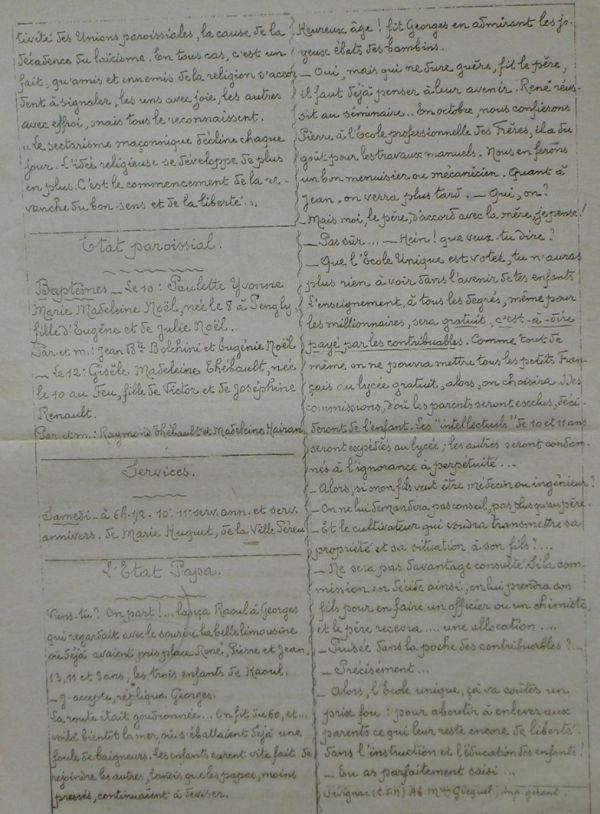 tivité des Unions paroissiales, la cause de la
décadence du laïcisme. En tous cas, c'est un
fait, qu'amis et ennemis de la religion s'accor
dent à signaler, les uns avec joie, les autres
avec effroi, mais tous le reconnaissent.
"Le sectarisme maçonnique décline chaque
jour. L'idée religieuse se développe de plus
en plus. C'est le commencement de la re-
vanche du bon sens et de la liberté."
Etat paroissial.
Baptêmes _ Le 10 : Paulette Yvonne
Marie Madeleine Noël, née le 8 à Pengly,
fille d'Eugène et de Julie Noël.
Par. et m. : Jean Bte Bolchini et Eugénie Noël
_ Le 12 : Gisèle Madeleine Thébault, née
le 10 au Feu, fille de Victor et de Joséphine
Renault.
Par. et m. : Raymond Thébault et Madeleine Hairan
Services.
Samedi _ à 6h. 1/2. 10. 11e serv. ann. et serv.
annivers. de Marie Huguet, de la Ville Péreu
L'Etat Papa.
Viens-tu ? On part !... lança Raoul à Georges
qui regardait avec le sourire la belle limousine
où déjà avaient pris place René, Pierre et Jean,
13, 11 et 8 ans, les trois enfants de Raoul.
_ J'accepte, répliqua Georges.
La route était goudronnée... On fit du 60, et...
voilà bientôt la mer, où s'ébattaient déjà une
foule de baigneurs. Les enfants eurent vite fait de
rejoindre les autres, tandis que les papas, moins
pressés, continuaient à deviser.
Heureux âge ! fit Georges en admirant les jo-
yeux ébats des bambins.
_ Oui, mais qui ne dure guère, fit le père,
il faut déjà penser à leur avenir. René réus-
sit au séminaire... En octobre, nous confierons
Pierre à l'Ecole professionnelle des Frères, il a du
goût pour les travaux manuels. Nous en ferons
un bon menuisier ou mécanicien. Quant à
Jean, on verra plus tard. _ Qui, on ?
_ Mais moi, le père, d'accord avec la mère, je pense !
_ Pas sûr.... _ Hein ! que veux-tu dire ?
_ Que l'Ecole Unique est votée, tu n'auras
plus rien à voir dans l'avenir de tes enfants
L'enseignement, à tous les degrés, même pour
les millionnaires, sera gratuit, c'est-à-dire
payé par les contribuables. Comme tout de
même on ne pourra mettre tous les petits Fran-
çais au lycée gratuit, alors, on choisira. Des
commissions, d'où les parents seront exclus, déci-
deront de l'enfant. Les "intellectuels" de 10 et 11 ans
seront expédiés au lycée ; les autres seront condam-
nés à l'ignorance à perpétuité...
_ Alors, si mon fils veut être médecin ou ingénieur ?
_ On ne lui demandera pas conseil, pas plus qu'au père.
_ Et le cultivateur qui voudra transmettre sa
propriété et sa situation à son fils ?...
_ Ne sera pas davantage consulté. Si la com-
mission en décide ainsi, on lui prendra son
fils pour en faire un officier ou un chimiste,
et le père recevra.... une allocation....
_ Puisée dans la poche des contribuables ?..
_ Précisément...
_ Alors, l'Ecole unique, ça va coûter un
prix fou : pour aboutir à enlever aux
parents ce qui leur reste encore de liberté
dans l'instruction et l'éducation des enfants !
_ Tu as parfaitement saisi...
Sévignac (C.d.N) Ab. Mce Gicquel, imp. gérant